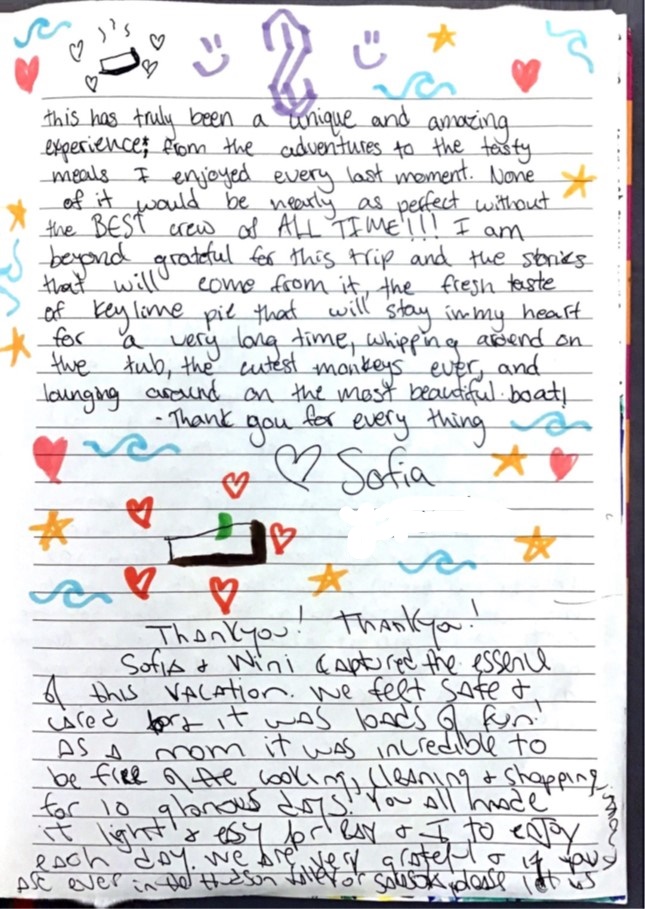 2
this has truly been a unique and amazing
experience; from the adventures to the tasty
meals I enjoyed every last moment. None
of it would be nearly as perfect without
the BEST crew of ALL TIME!!! I am
beyond grateful for this trip and the stories
that will come from it, the fresh taste
of keylime pie that will stay in my heart
for a very long time, whipping around on
the tub, the cutest monkeys ever, and
lounging around on the most beautiful boat!
- Thank you for every thing
♡ Sofia
Thankyou! Thankyou!
Sofia & Wini captured the essence
of this vacation. We felt safe &
cared for & it was loads of fun!
As a mom it was incredible to
be free of the cooking, cleaning & shopping
for 10 glorious days! You all made
it light & easy for & I to enjoy
each day. We are very grateful & if you
are ever in the Hudson Valley or please let us